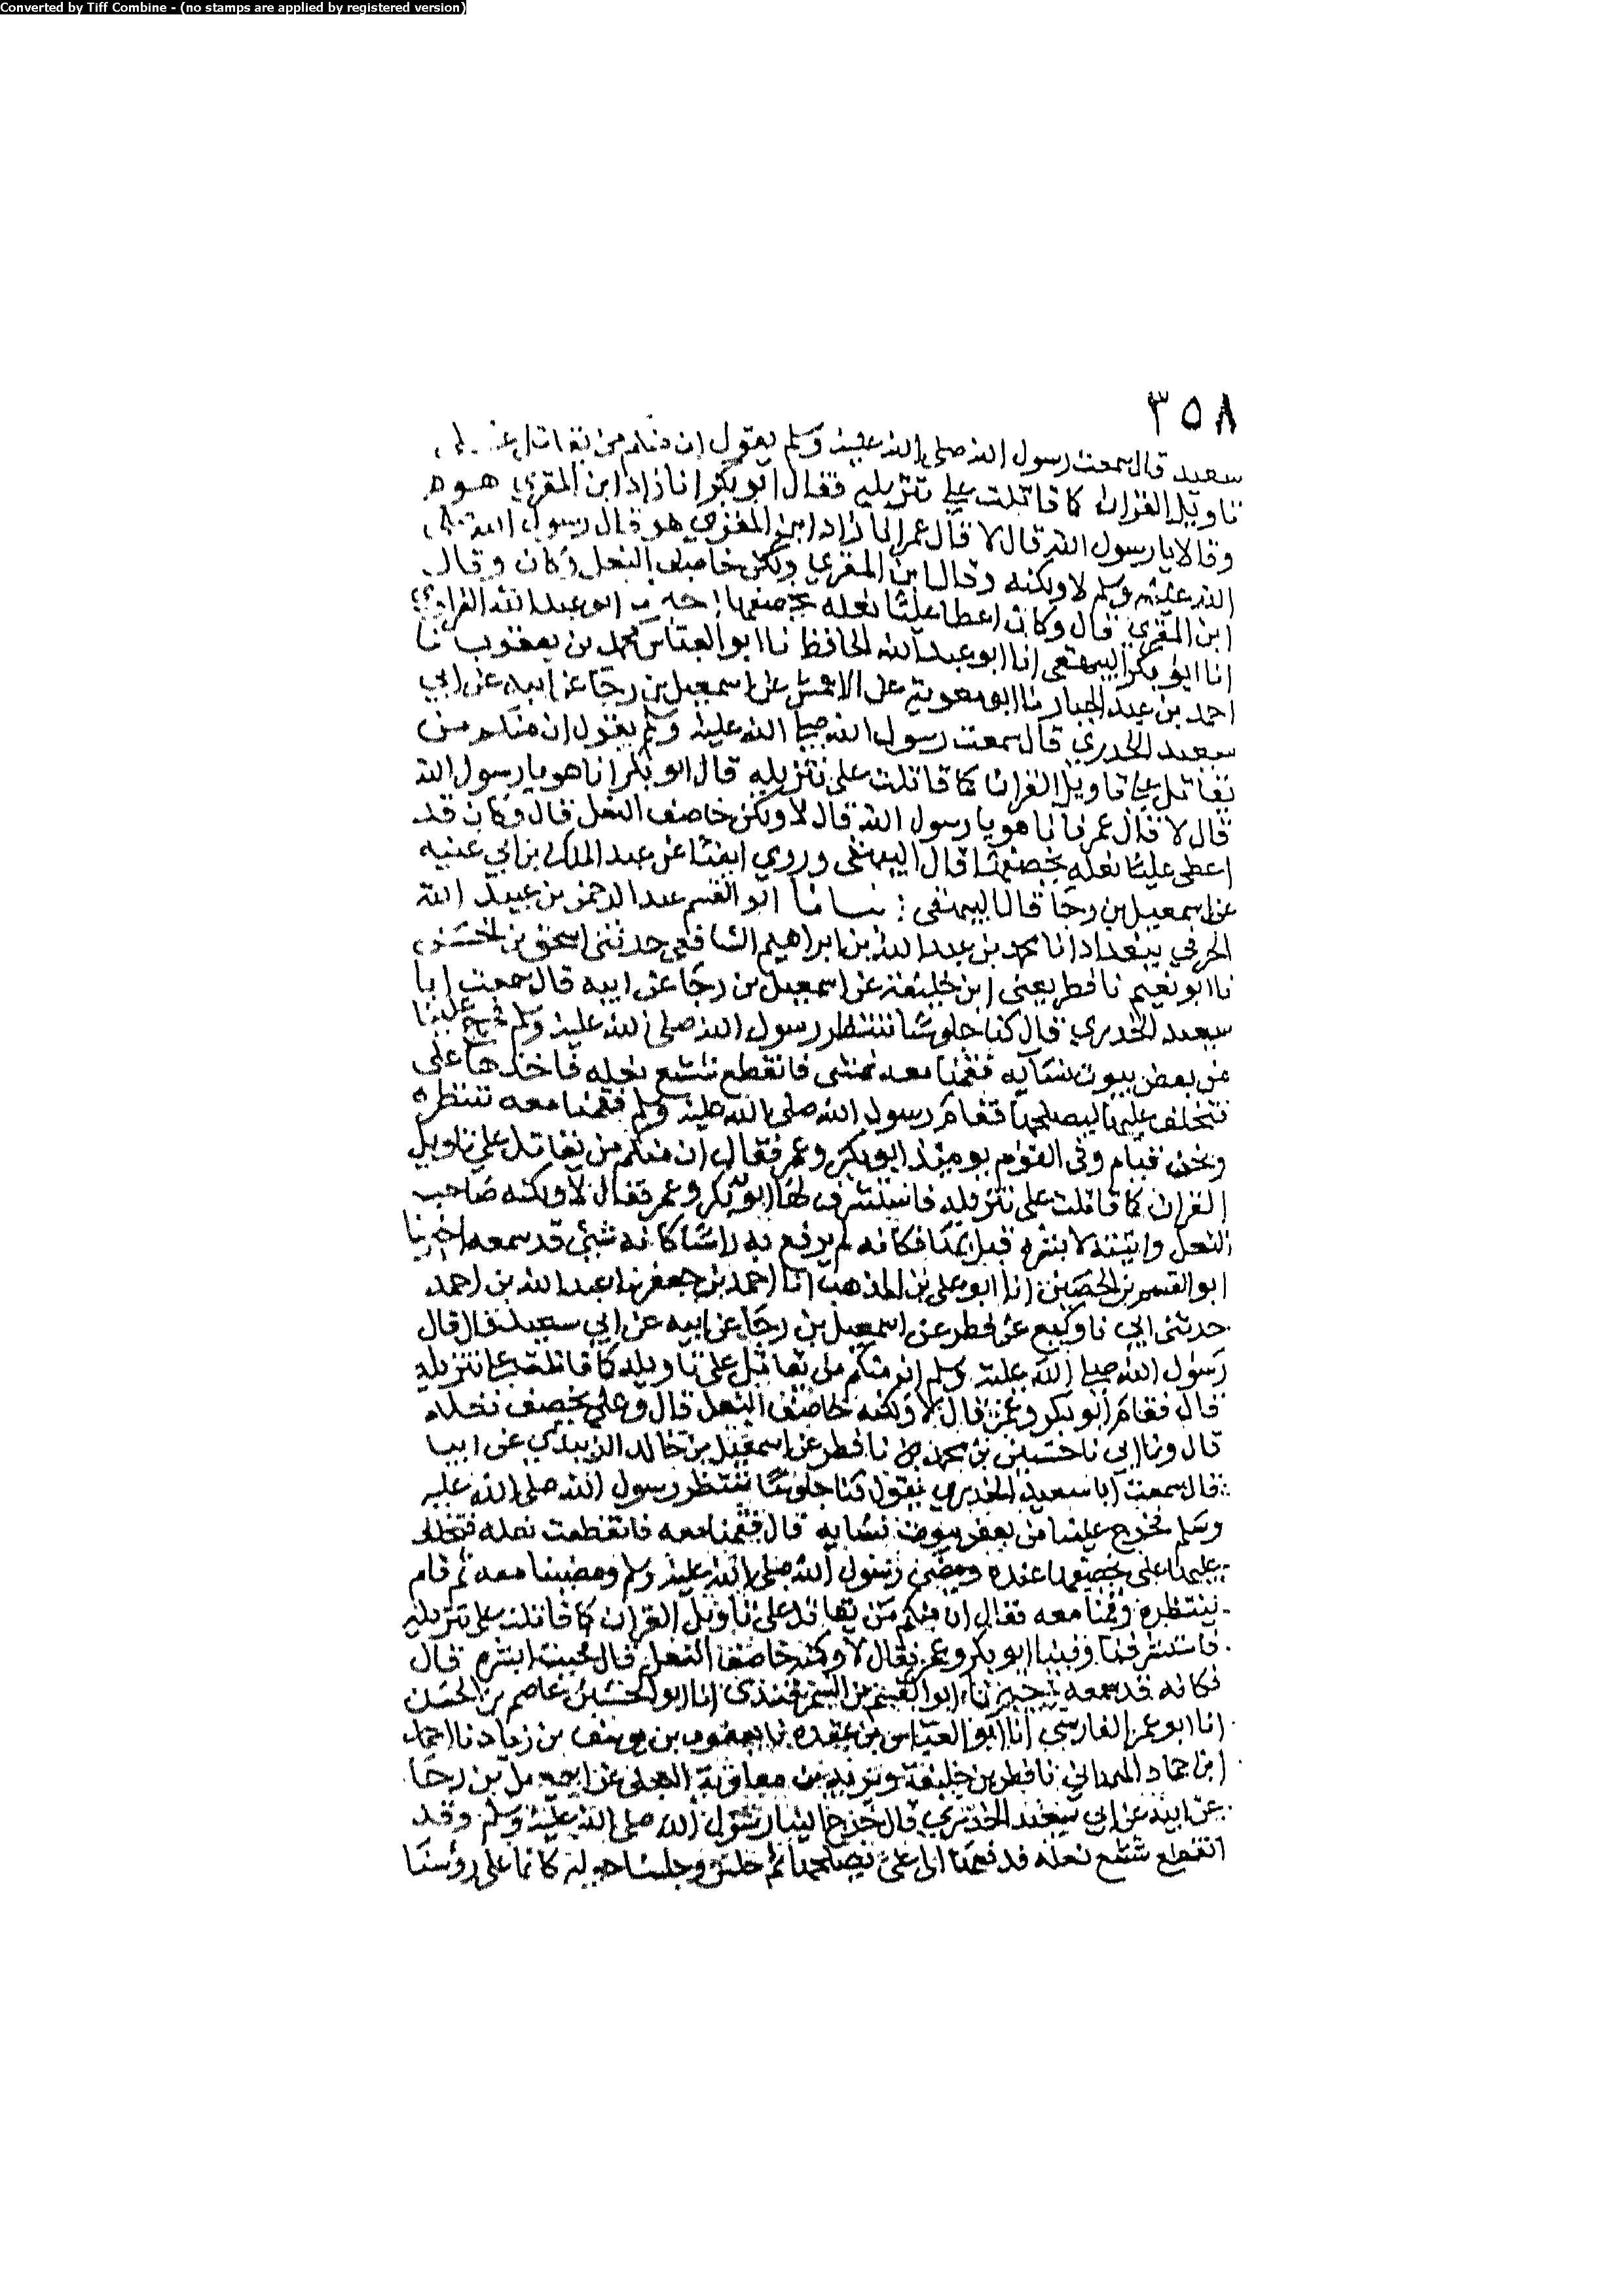 Converted by Tiff Combine - (no stamps are applied by registered version)
٣٥٨
سعيد قال سمعت رسول الله صلى الله عليه وسلم يقول ان منكم من يقاتل
تاويل القران كما قاتلت على تنزيله فقال ابو بكر انا زاد ابن المقري هو
وقالا يا رسول الله قال لا قال عمر انا زاد ابن المقري هو قال رسول الله
الله عليه وسلم لا ولكنه وقال ابن المقري ولكن خاصف النعل وكان وقال
ابن المقري قال وكان اعطا عليا نعله يخصفها ابو عبد الله الفراوي
انا ابو بكر البيهقي انا ابو عبد الله الحافظ نا ابو العباس محمد بن يعقوب نا
احمد بن عبد الجبار نا ابو معوية عن الاعمش عن اسمعيل بن رجا عن ابيه عن ابي
سعيد الخدري قال سمعت رسول الله صلى الله عليه وسلم يقول ان منكم من
يقاتل على تاويل القران كما قاتلت على تنزيله قال ابو بكر انا هو يا رسول الله
قال لا قال عمر فانا هو يا رسول الله قال لا ولكن خاصف النعل قال وكان قد
اعطى عليا نعله يخصفها قال البيهقي وروي ايضا عن عبد الملك بن ابي غنيه
عن اسمعيل بن رجا قال البيهقي انا ابو القسم عبد الرحمن بن عبيد الله
الحرفي ببغداد انا محمد بن عبد الله بن ابراهيم الشافعي حدثني اسحق بن الحسن
نا ابو نعيم نا فطر يعني ابن خليفة عن اسمعيل بن رجا عن ابيه قال سمعت ابا
سعيد الخدري قال كنا جلوسا ننتظر رسول الله صلى الله عليه وسلم فخرج علينا
من بعض بيوت نسايه فقمنا معه نمشي فانقطع شسع نعله فاخذها علي
فتخلف عليها ليصلحها فقام رسول الله صلى الله عليه وسلم فقمنا معه ننتظره
ونحن قيام وفي القوم يوميذ ابو بكر وعمر فقال ان منكم من يقاتل على تاويل
القران كما قاتلت على تنزيله فاستشرف لها ابو بكر وعمر فقال لا ولكنه صاحب
النعل واتيته لابشره قبل بها فكانه لم يرفع به راسا كانه شيئ قد سمعه اخبرنا
ابو القسم بن الحصين انا ابو علي بن المذهب انا احمد بن جعفر نا عبد الله بن احمد
حدثني ابي نا وكيع عن فطر عن اسمعيل بن رجا عن ابيه عن ابي سعيد قال قال
رسول الله صلى الله عليه وسلم ان منكم من يقاتل على تاويله كما قاتلت على تنزيله
قال فقام ابو بكر وعمر قال لا ولكنه خاصف النعل قال وعلي يخصف نعله
قال ونا ابي نا حسين بن محمد نا فطر عن اسمعيل بن خالد الزبيدي عن ابيه
قال سمعت ابا سعيد الخدري يقول كنا جلوسا ننتظر رسول الله صلى الله عليه
وسلم فخرج علينا من بعض بيوت نسايه قال فقمنا معه فانقطعت نعله فتخلف
عليها علي يخصفها عنده ومضى رسول الله صلى الله عليه وسلم ومضينا معه ثم قام
ينتظره وقمنا معه فقال ان منكم من يقاتل على تاويل القران كما قاتلت على تنزيله
فاستشرفنا وفينا ابو بكر وعمر فقال لا ولكنه خاصف النعل قال فجينا ابشره قال
فكانه قد سمعه اخبرنا ابو القسم بن السمرقندي انا ابو الحسين عاصم بن الحسن
انا ابو عمر الفارسي انا ابو العباس بن عقده نا يعقوب بن يوسف بن زياد نا احمد
ابن حماد الهمداني نا فطر بن خليفة وبريد بن معاوية العجلي عن اسمعيل بن رجا
عن ابيه عن ابي سعيد الخدري قال خرج الينا رسول الله صلى الله عليه وسلم وقد
انقطع شسع نعله فدفعها الى علي يصلحها ثم جلس وجلسنا حوله كانما على رؤسنا